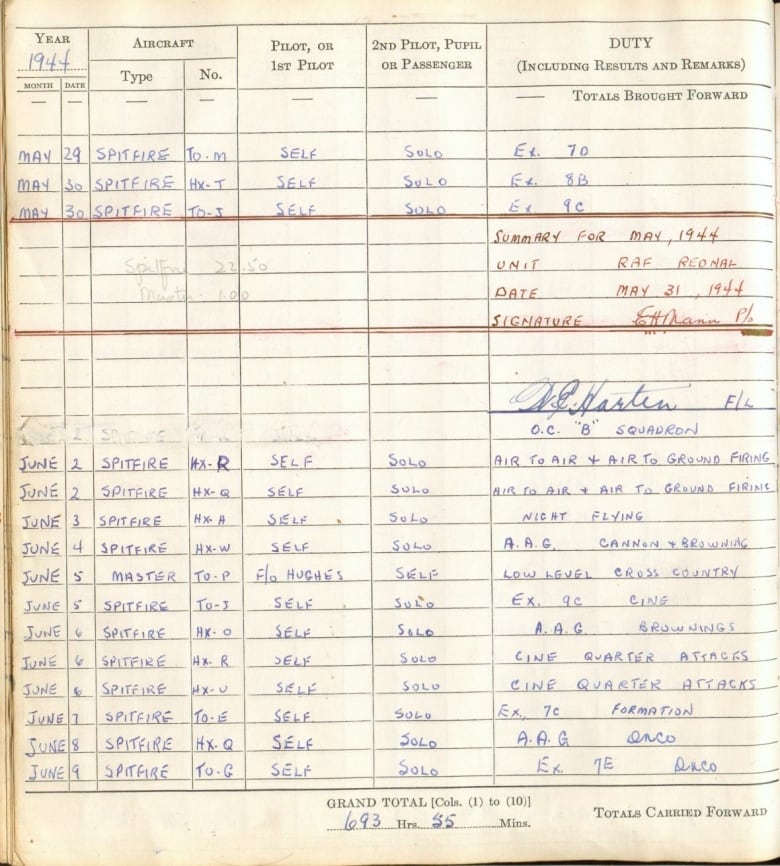 YEAR AIRCRAFT PILOT, OR 2ND PILOT, PUPIL DUTY
1944 1ST PILOT OR PASSENGER (INCLUDING RESULTS AND REMARKS)
MONTH DATE Type No.
— — — — — — — TOTALS BROUGHT FORWARD
MAY 29 SPITFIRE TO-M SELF SOLO Ex. 7D
MAY 30 SPITFIRE HX-T SELF SOLO Ex. 8B
MAY 30 SPITFIRE TO-J SELF SOLO Ex 9C
SUMMARY FOR MAY, 1944
Spitfire 22.50 UNIT RAF REDNAL
Master 1.00 DATE MAY 31, 1944
SIGNATURE EHMann P/o
W.E. Harten F/L
O.C. "B" SQUADRON
JUNE 2 SPITFIRE HX-R SELF SOLO AIR TO AIR + AIR TO GROUND FIRING
JUNE 2 SPITFIRE HX-Q SELF SOLO AIR TO AIR + AIR TO GROUND FIRING
JUNE 3 SPITFIRE HX-A SELF SOLO NIGHT FLYING
JUNE 4 SPITFIRE HX-W SELF SOLO A.A.G. CANNON + BROWNING
JUNE 5 MASTER TO-P F/O HUGHES SELF LOW LEVEL CROSS COUNTRY
JUNE 5 SPITFIRE TO-J SELF SOLO Ex. 9C CINE
JUNE 6 SPITFIRE HX-O SELF SOLO A.A.G. BROWNINGS
JUNE 6 SPITFIRE HX-R SELF SOLO CINE QUARTER ATTACKS
JUNE 6 SPITFIRE HX-U SELF SOLO CINE QUARTER ATTACKS
JUNE 7 SPITFIRE TO-E SELF SOLO Ex, 7C FORMATION
JUNE 8 SPITFIRE HX-Q SELF SOLO A.A.G DNCO
JUNE 9 SPITFIRE TO-G SELF SOLO Ex. 7E DNCO
GRAND TOTAL [Cols. (1) to (10)] TOTALS CARRIED FORWARD
693 Hrs. 55 Mins.